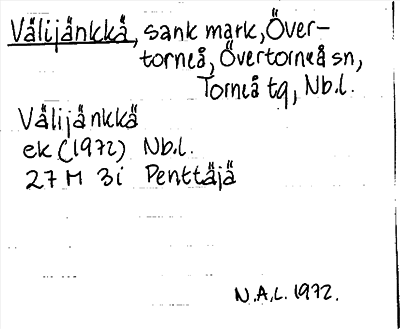 Välijänkkä, sank mark, Över-
torneå, Övertorneå sn,
Torneå tg, Nb.l.
Välijänkkä
ek (1972) Nb.l.
27 M 3i Penttäjä
N.A.L. 1972.